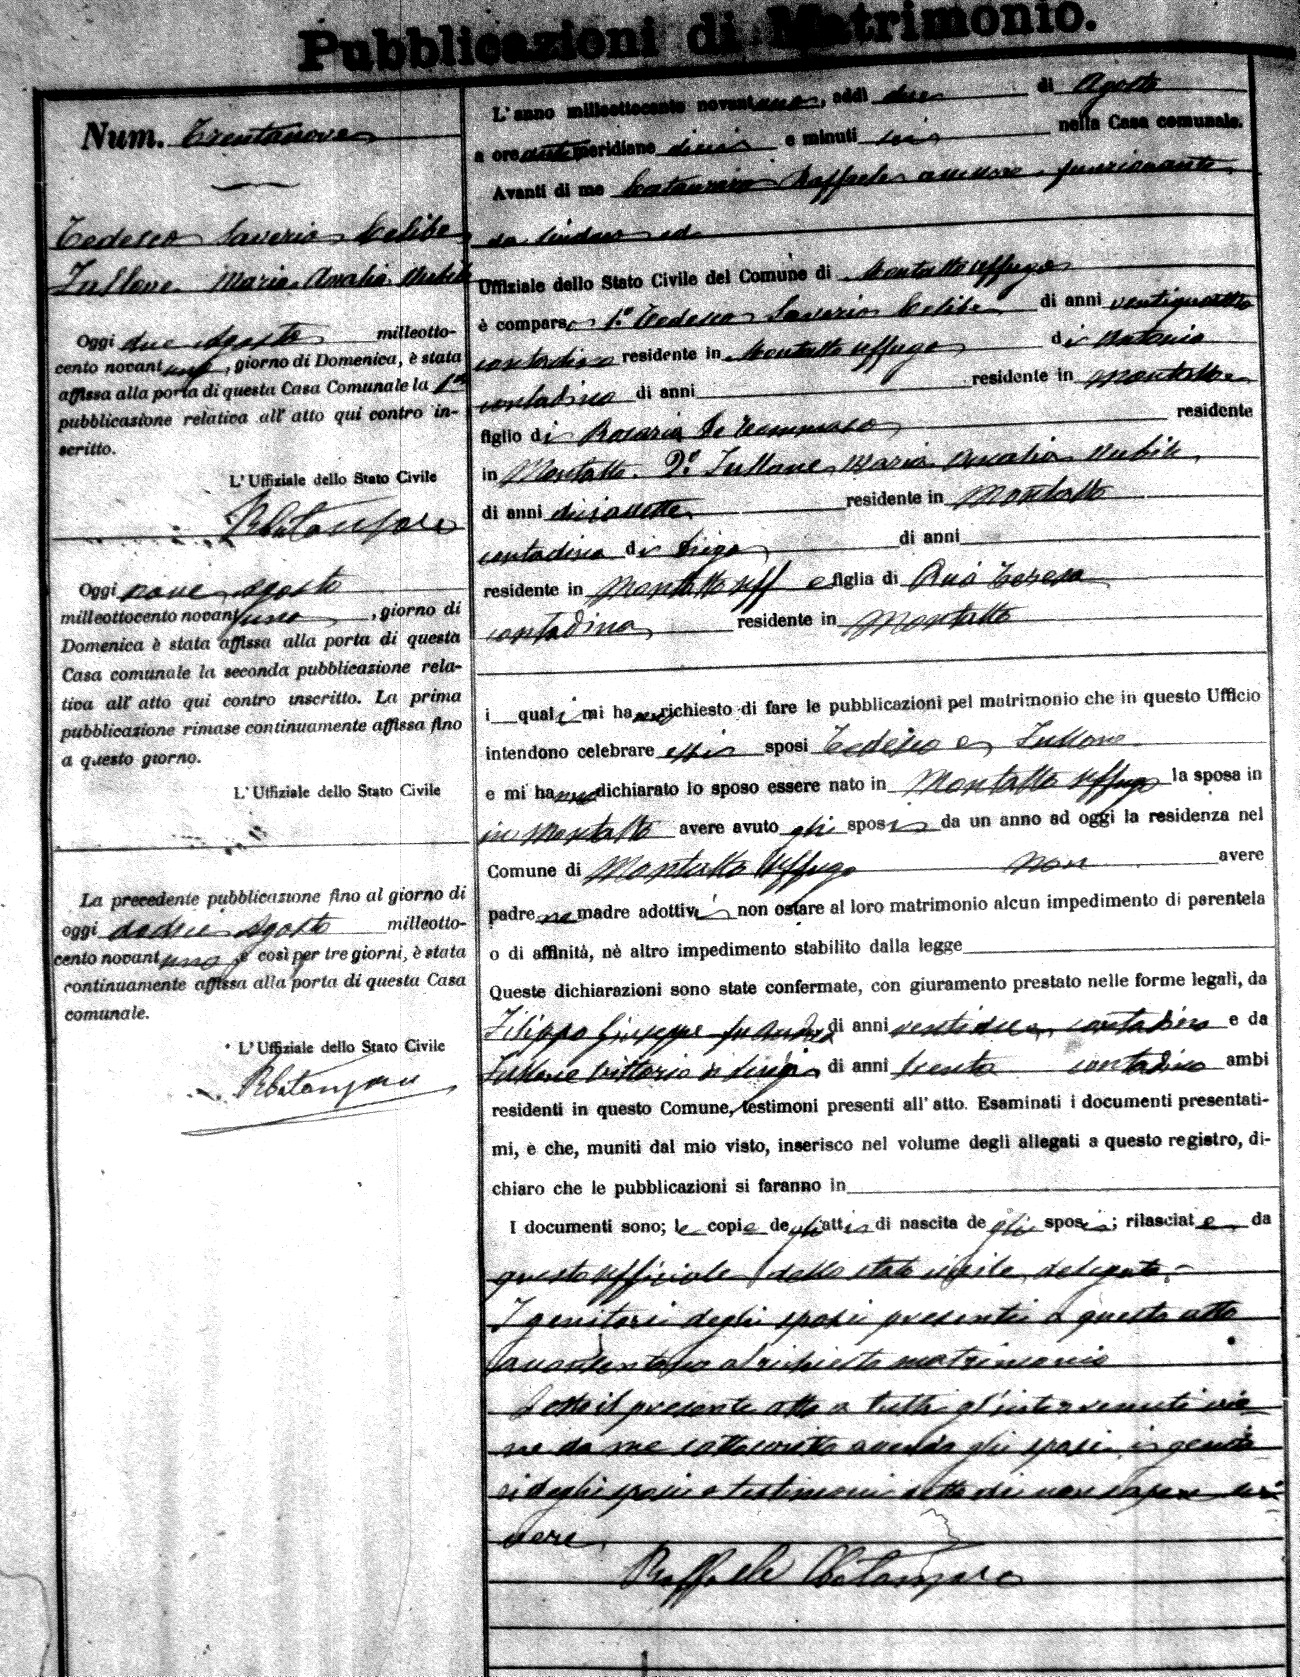 Pubblicazioni di Matrimonio.
Num. Trentanove
Tedesco Saverio Celibe
Maria Amalia Nubile
Oggi due Agosto milleotto-
cento novantuno, giorno di Domenica, è stata
affissa alla porta di questa Casa Comunale la 1a
pubblicazione relativa all' atto qui contro in-
scritto.
L' Uffiziale dello Stato Civile
Oggi nove Agosto
milleottocento novantuno, giorno di
Domenica è stata affissa alla porta di questa
Casa comunale la seconda pubblicazione rela-
tiva all' atto qui contro inscritto. La prima
pubblicazione rimase continuamente affissa fino
a questo giorno.
L' Uffiziale dello Stato Civile
La precedente pubblicazione fino al giorno di
oggi dodici Agosto milleotto-
cento novantuno e così per tre giorni, è stata
continuamente affissa alla porta di questa Casa
comunale.
L' Uffiziale dello Stato Civile
L' anno milleottocento novantuno, addì due di Agosto
a ore antimeridiane dieci e minuti sei nella Casa comunale.
Avanti di me Raffaele assessore funzionante
da Sindaco ed
Uffiziale dello Stato Civile del Comune di Montalto Uffugo
è comparso 1.º Tedesco Saverio Celibe di anni ventiquattro
contadino residente in Montalto Uffugo di Antonio
contadino di anni residente in Montalto
figlio di Rosaria De Tommaso residente
in Montalto. 2.º Maria Amalia Nubile,
di anni diciassette residente in Montalto
contadina di anni
residente in Montalto Uff e figlia di Teresa
contadina residente in Montalto
i quali mi hanno richiesto di fare le pubblicazioni pel matrimonio che in questo Ufficio
intendono celebrare essi sposi Tedesco e
e mi hanno dichiarato lo sposo essere nato in Montalto Uffugo la sposa in
in Montalto avere avuto gli sposi da un anno ad oggi la residenza nel
Comune di Montalto Uffugo non avere
padre ne madre adottivi non ostare al loro matrimonio alcun impedimento di parentela
o di affinità, nè altro impedimento stabilito dalla legge
Queste dichiarazioni sono state confermate, con giuramento prestato nelle forme legali, da
Filippo Giuseppe fu di anni ventidue, contadino e da
Vittorio di di anni trenta contadino ambi
residenti in questo Comune, testimoni presenti all' atto. Esaminati i documenti presentati-
mi, e che, muniti dal mio visto, inserisco nel volume degli allegati a questo registro, di-
chiaro che le pubblicazioni si faranno in
I documenti sono; le copie degli atti di nascita de gli sposi; rilasciate da
questo ufficiale dello stato civile delegato.
I genitori degli sposi presenti a questo atto
acconsentono al richiesto matrimonio
Letto il presente atto a tutti gl'intervenuti vie
ne da me sottoscritto avendo gli sposi i genito
ri degli sposi e testimoni detto di non sapere scri
vere
Raffaele